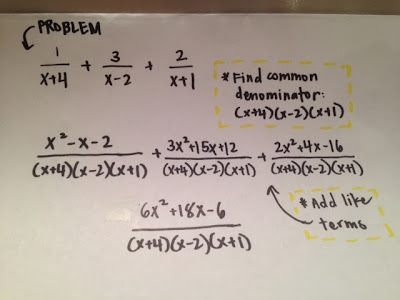 PROBLEM
1/(x+4) + 3/(x-2) + 2/(x+1)
* Find common
denominator:
(x+4)(x-2)(x+1)
(x²-x-2)/((x+4)(x-2)(x+1)) + (3x²+15x+12)/((x+4)(x-2)(x+1)) + (2x²+4x-16)/((x+4)(x-2)(x+1))
* Add like
terms
(6x²+18x-6)/((x+4)(x-2)(x+1))